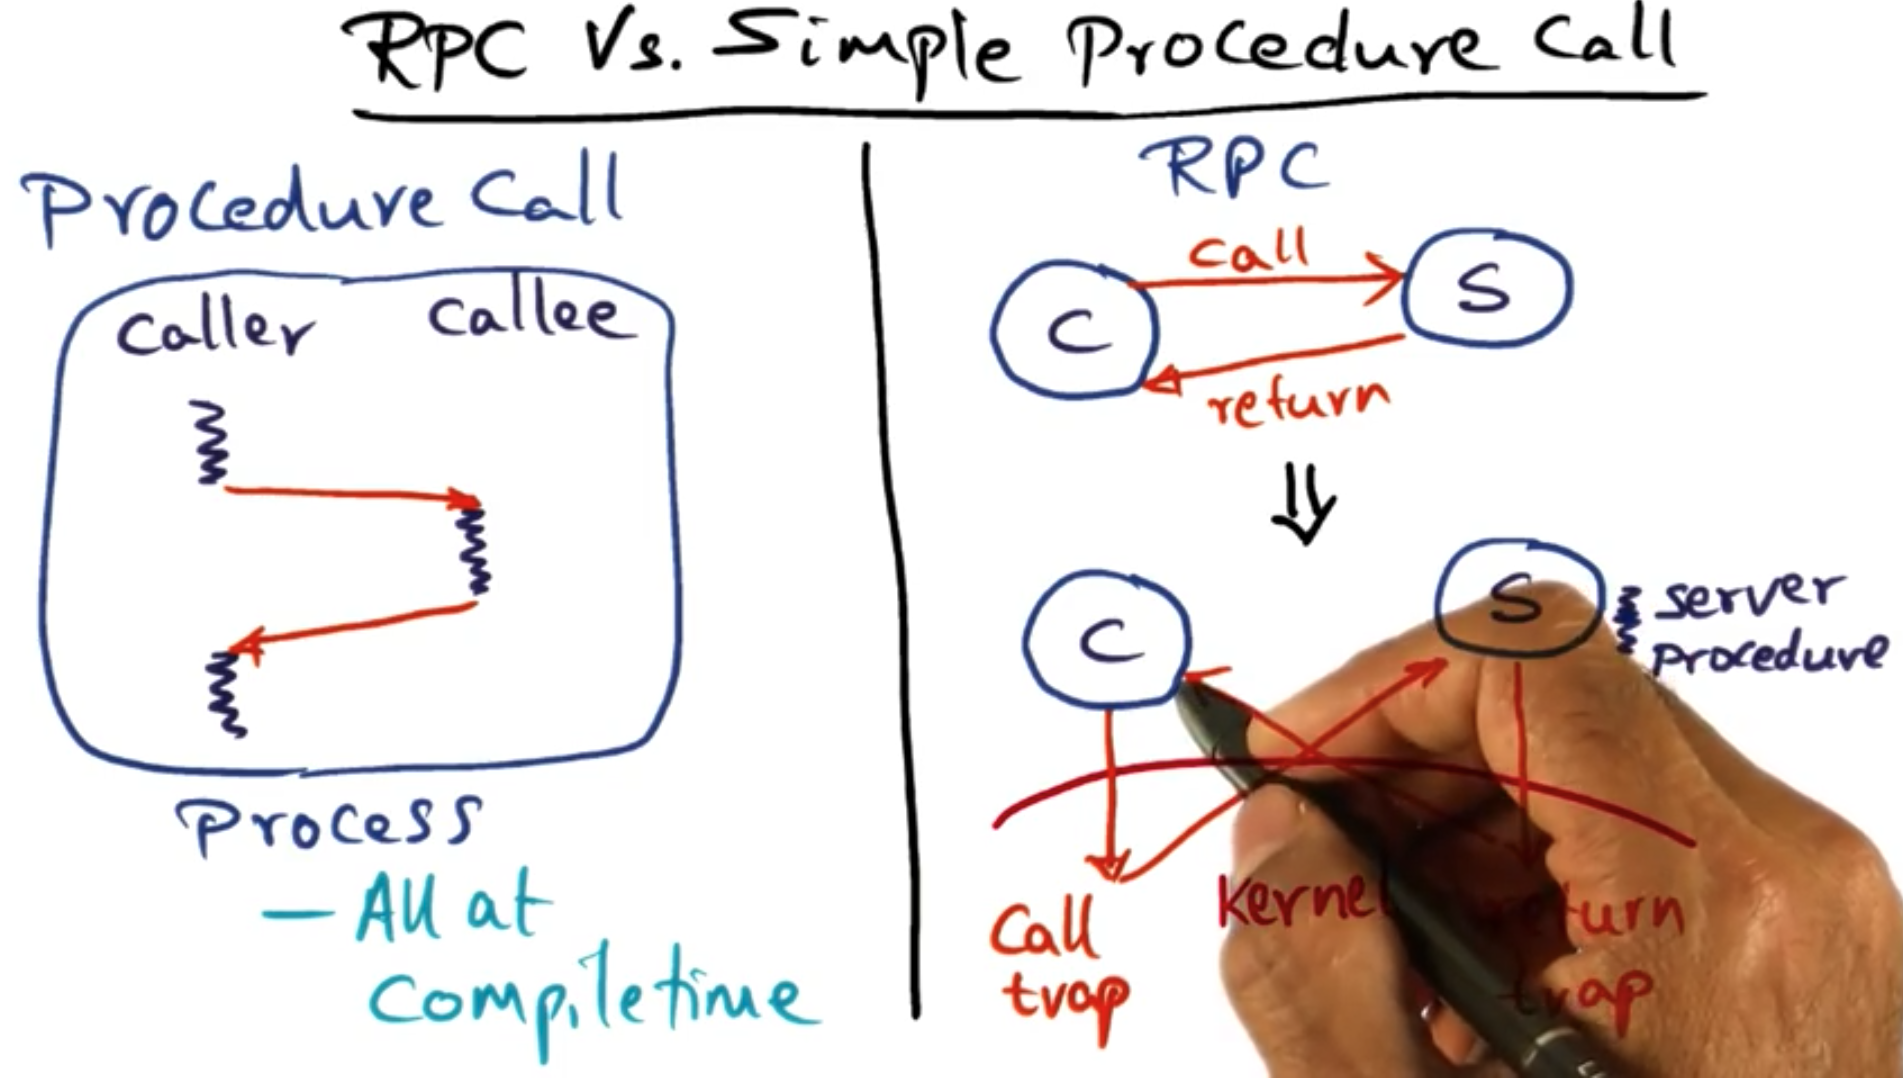 RPC Vs. Simple Procedure Call
Procedure Call
Caller Callee
Process
— All at
Compiletime
RPC
Call
C
S
return
C
S
server
procedure
Call
trap
Kernel
return
trap